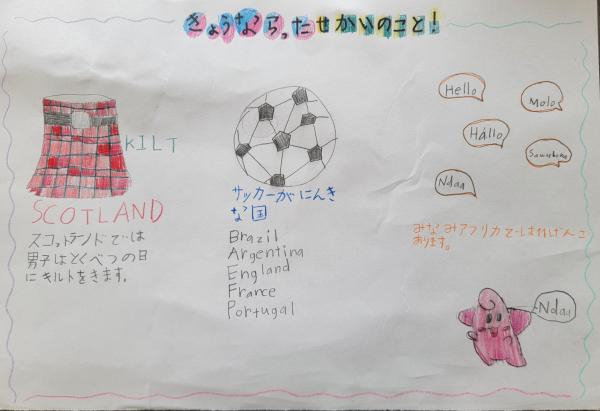 きょうならったせかいのこと!
KILT
SCOTLAND
スコットランドでは
男子はとくべつの日
にキルトをきます。
サッカーがにんき
な国
Brazil
Argentina
England
France
Portugal
Hello
Molo
Hállo
Sawubona
Ndaa
みなみアフリカでは げんご
あります。
Ndaa